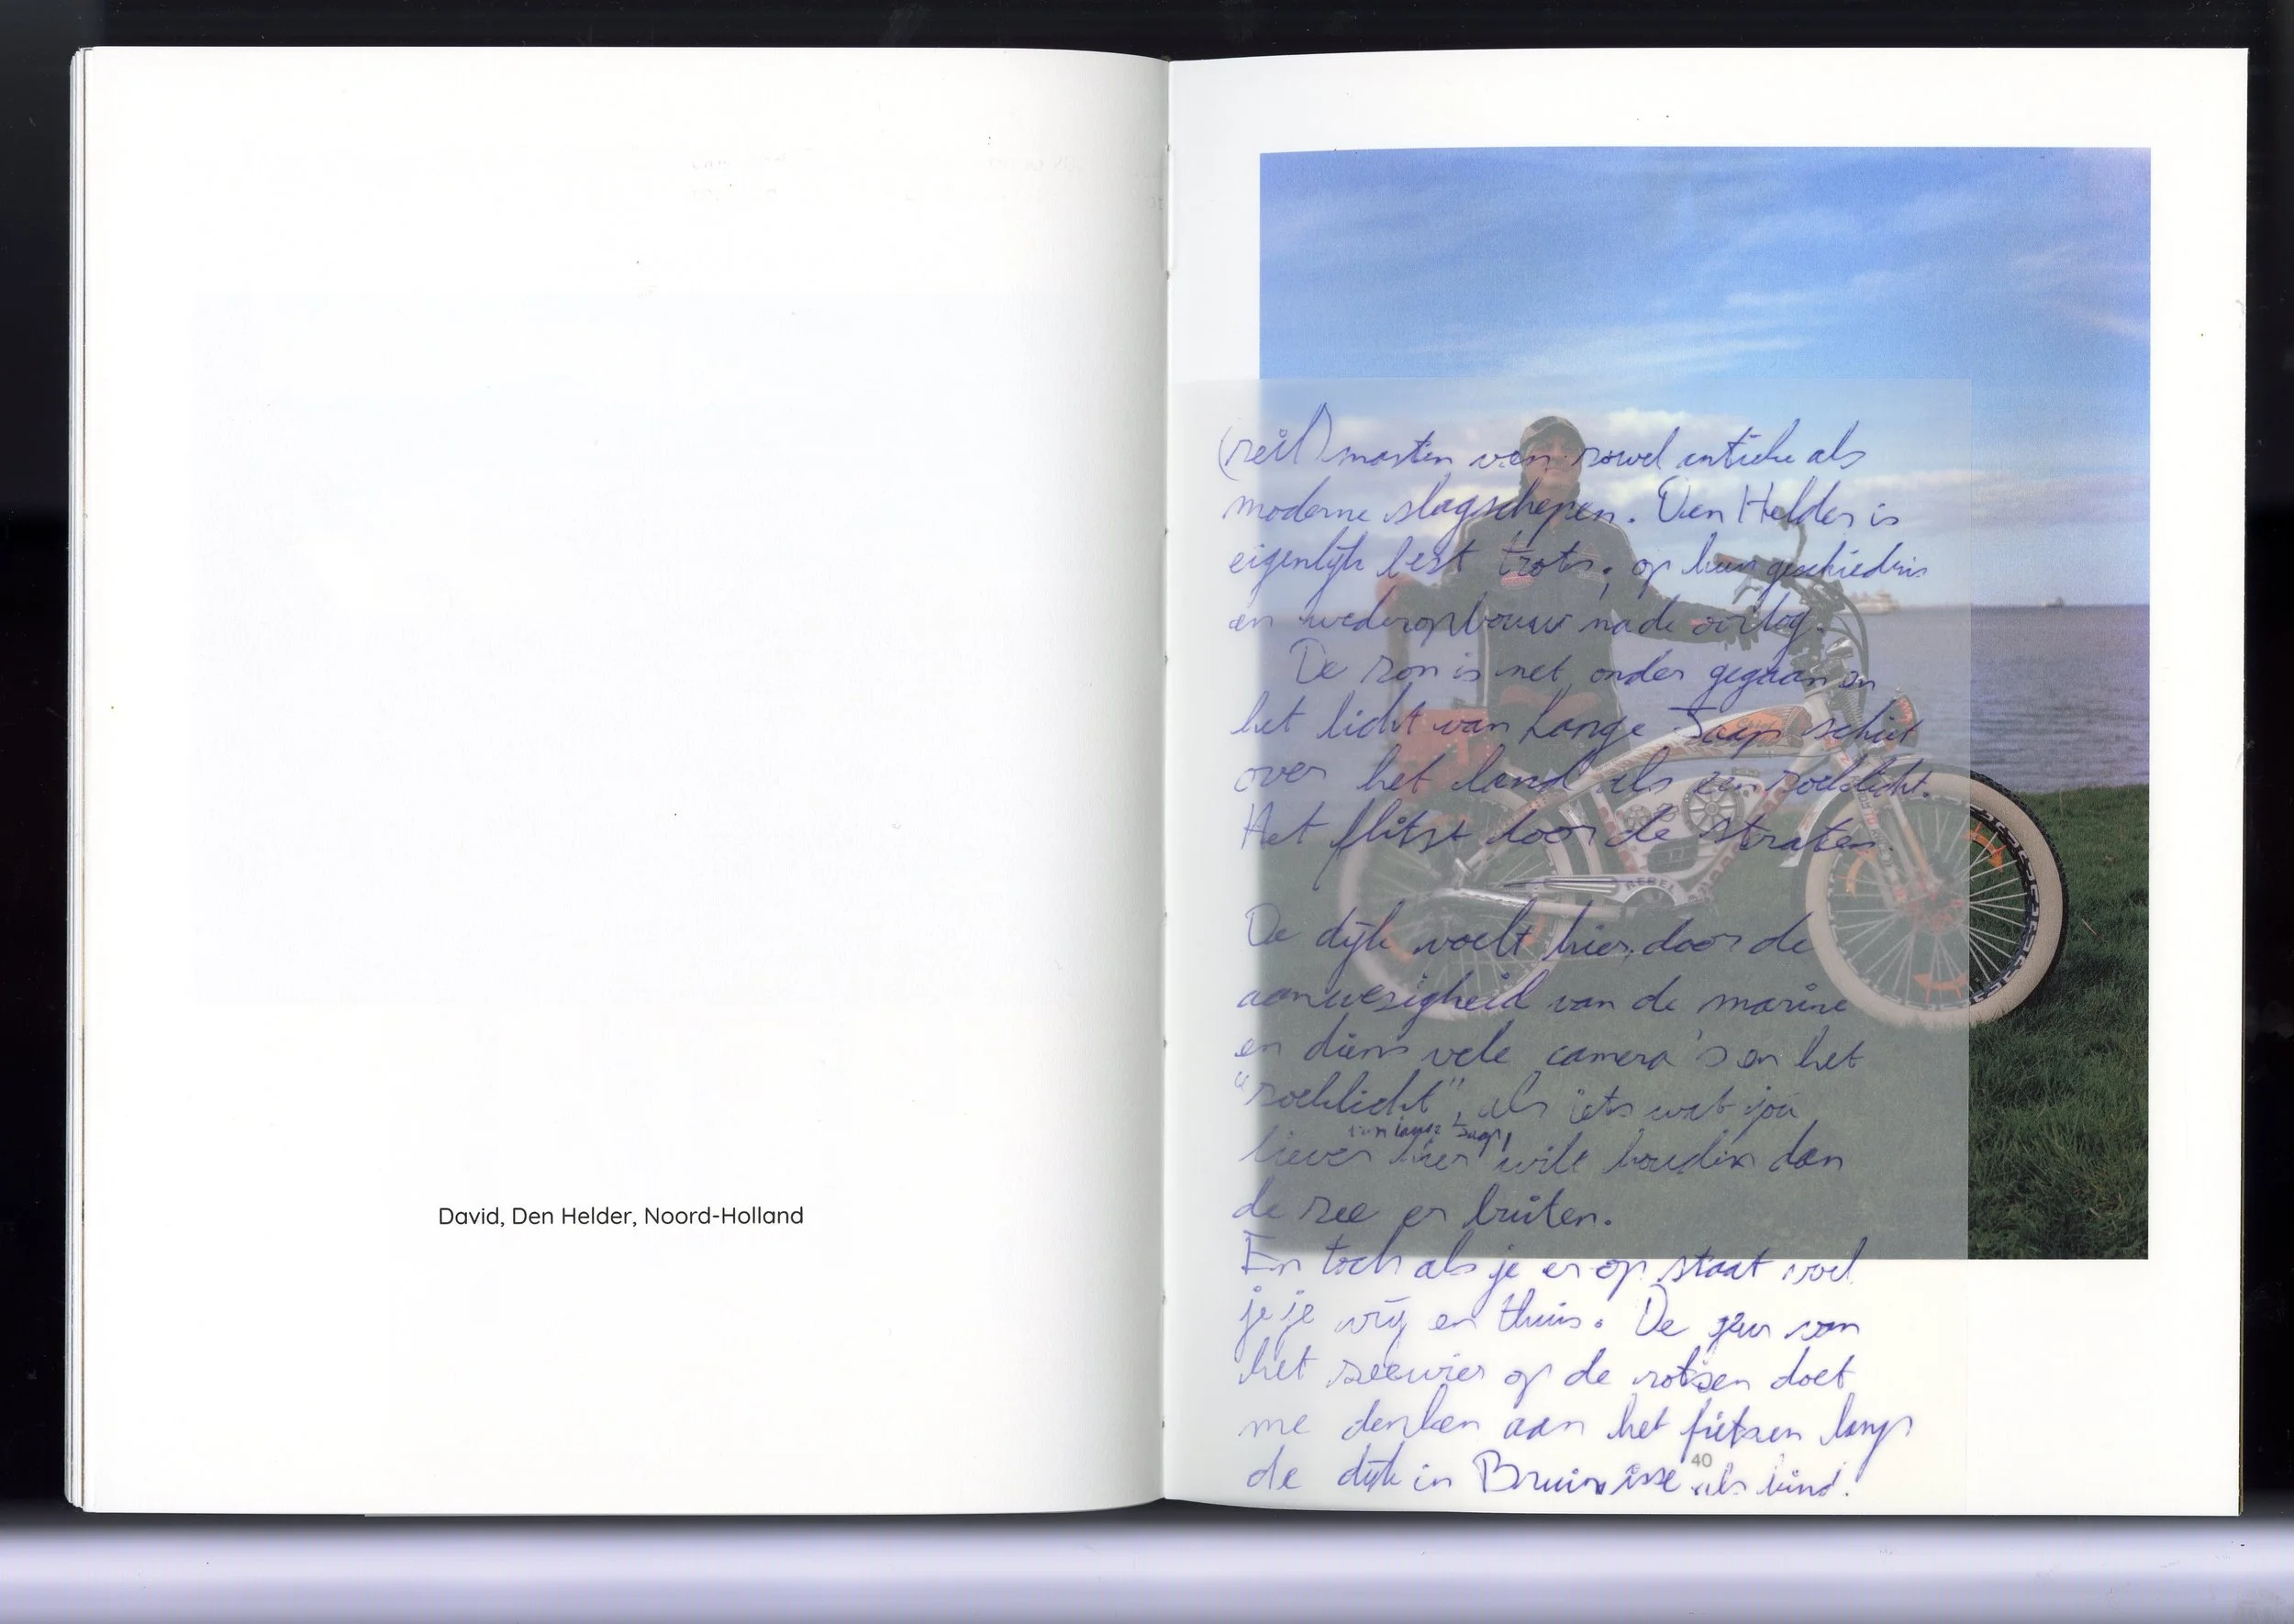 David, Den Helder, Noord-Holland
(zeil) masten van zowel antieke als
moderne slagschepen. Den Helder is
eigenlijk best trots, op hun geschiedenis
en wederopbouw na de oorlog.
De zon is net onder gegaan en
het licht van Lange Jaap schiet
over het land als een zoeklicht.
Het flitst door de straten.
REBEL
De dijk voelt hier, door de
aanwezigheid van de marine
en diens vele camera's en het
"zoeklicht", als iets wat jou
van Lange Jaap,
liever hier wilt houden dan
de zee er buiten.
En toch als je er op staat voel
je je vrij en thuis. De geur van
het zeewier op de rotsen doet
me denken aan het fietsen langs
de dijk in Bruinisse als kind.
40